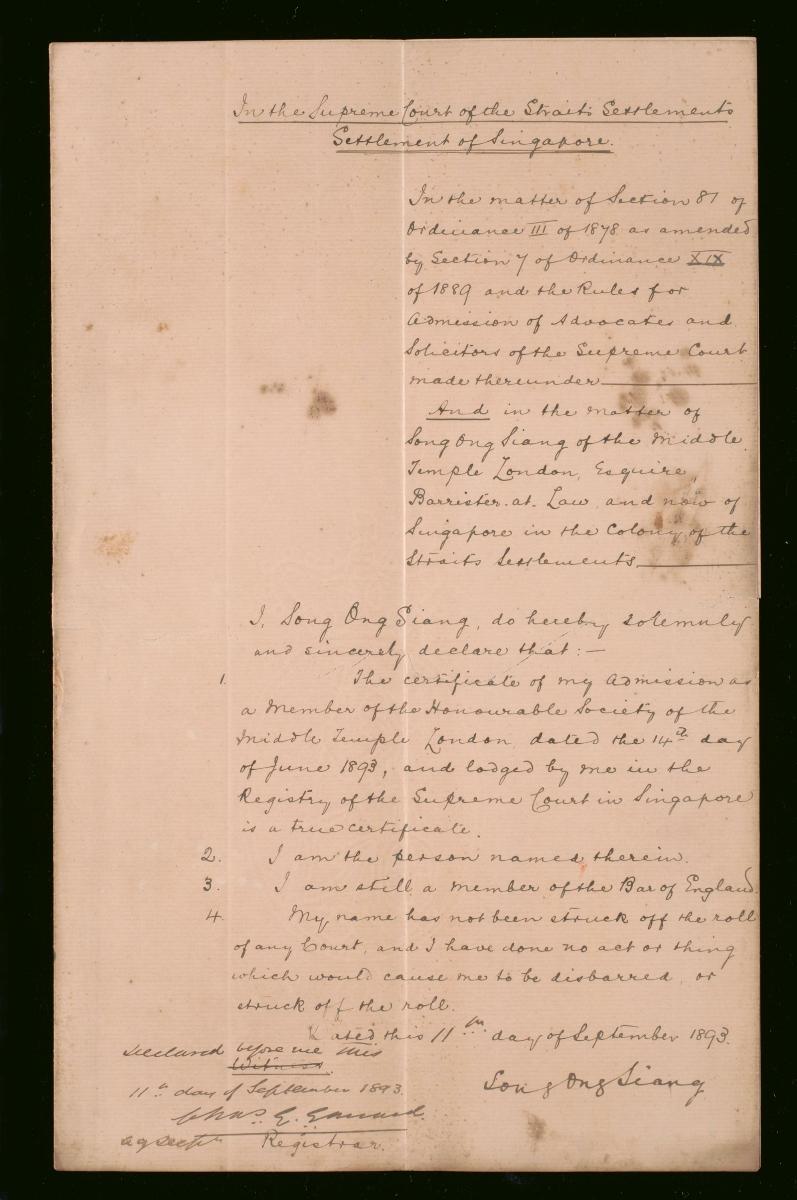 In the Supreme Court of the Straits Settlements
Settlement of Singapore.
In the matter of Section 87 of
Ordinance III of 1878 as amended
by Section 7 of Ordinance XIX
of 1889 and the Rules for
Admission of Advocates and
Solicitors of the Supreme Court
made thereunder
And in the matter of
Song Ong Siang of the Middle
Temple London, Esquire,
Barrister-at-Law and now of
Singapore in the Colony of the
Straits Settlements
I, Song Ong Siang, do hereby solemnly
and sincerely declare that:—
1. The certificate of my admission as
a Member of the Honourable Society of the
Middle Temple London dated the 14th day
of June 1893, and lodged by me in the
Registry of the Supreme Court in Singapore
is a true certificate.
2. I am the person named therein.
3. I am still a member of the Bar of England.
4. My name has not been struck off the roll
of any Court, and I have done no act or thing
which would cause me to be disbarred, or
struck off the roll.
Dated this 11th day of September 1893.
Declared before me this
Witness.
11th day of September 1893.
Song Ong Siang
Chas. E.
Registrar.